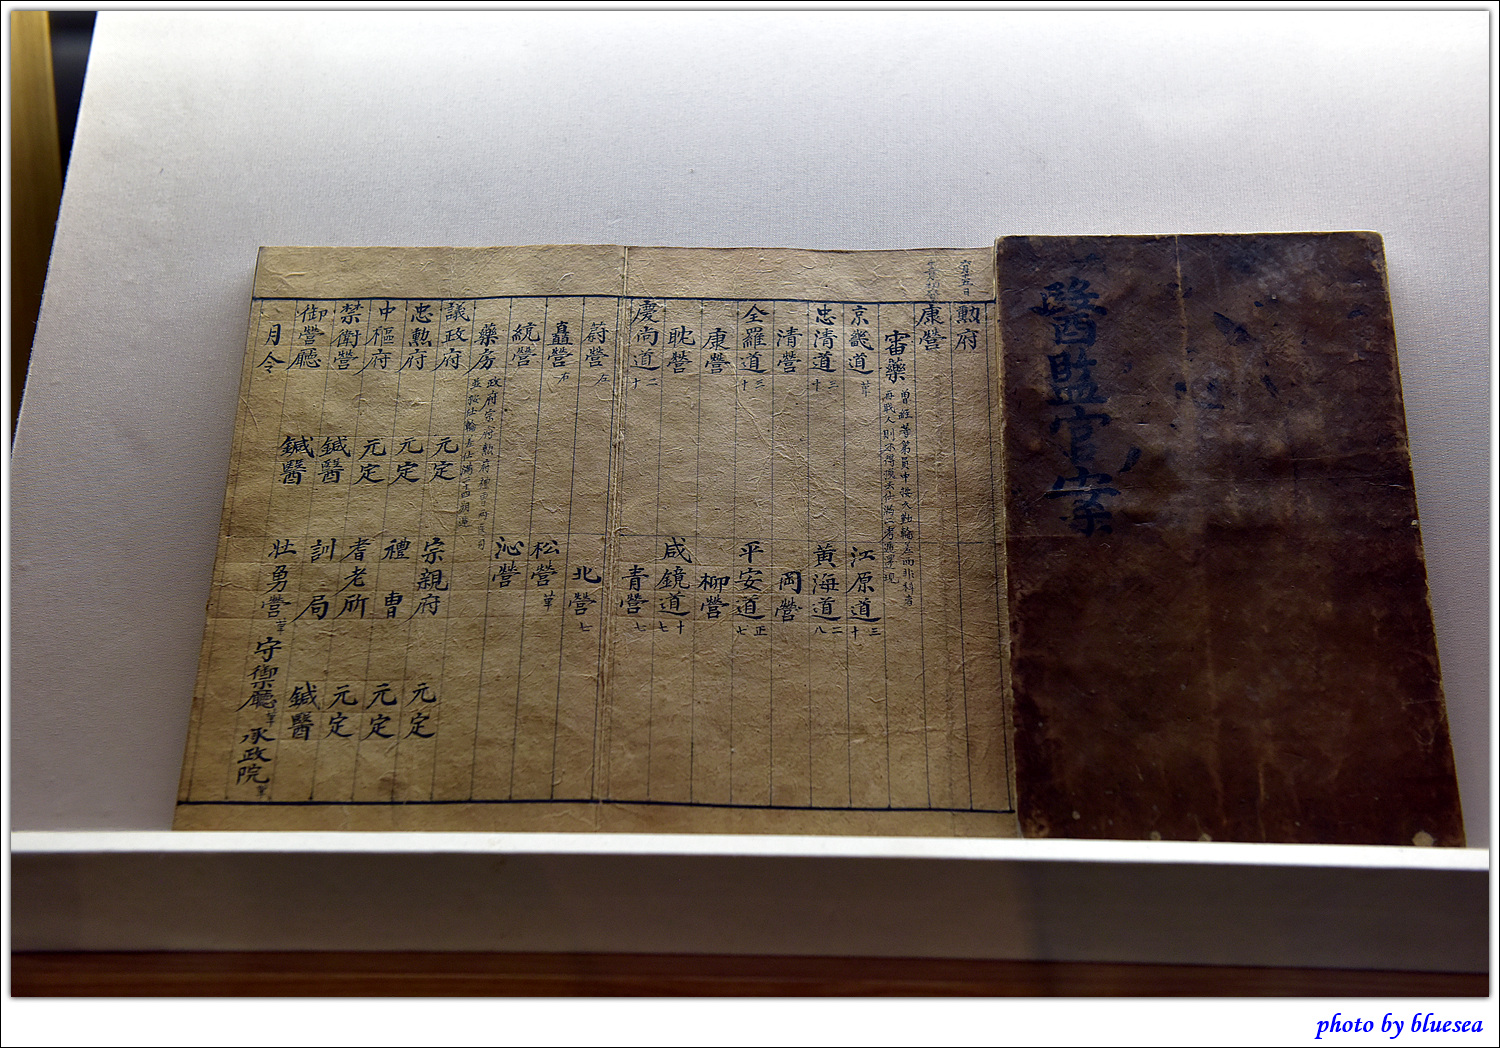 醫監官案
勲府
康營
審藥
京畿道 華 江原道 三十
忠清道 三十 黄海道 二八
清營 岡營
全羅道 三十 平安道 正七
康營 柳營
耽營 咸鏡道 十七
慶尚道 二十 青營 七
蔚營 左 北營 七
矗營 右 松營 華
統營 沁營
藥房
議政府 元定 宗親府 元定
忠勲府 元定 禮曹 元定
中樞府 元定 耆老所 元定
禁衛營 鍼醫 訓局 鍼醫
御營廳 鍼醫 壯勇營 華
月令 守禦廳 華 承政院
photo by bluesea